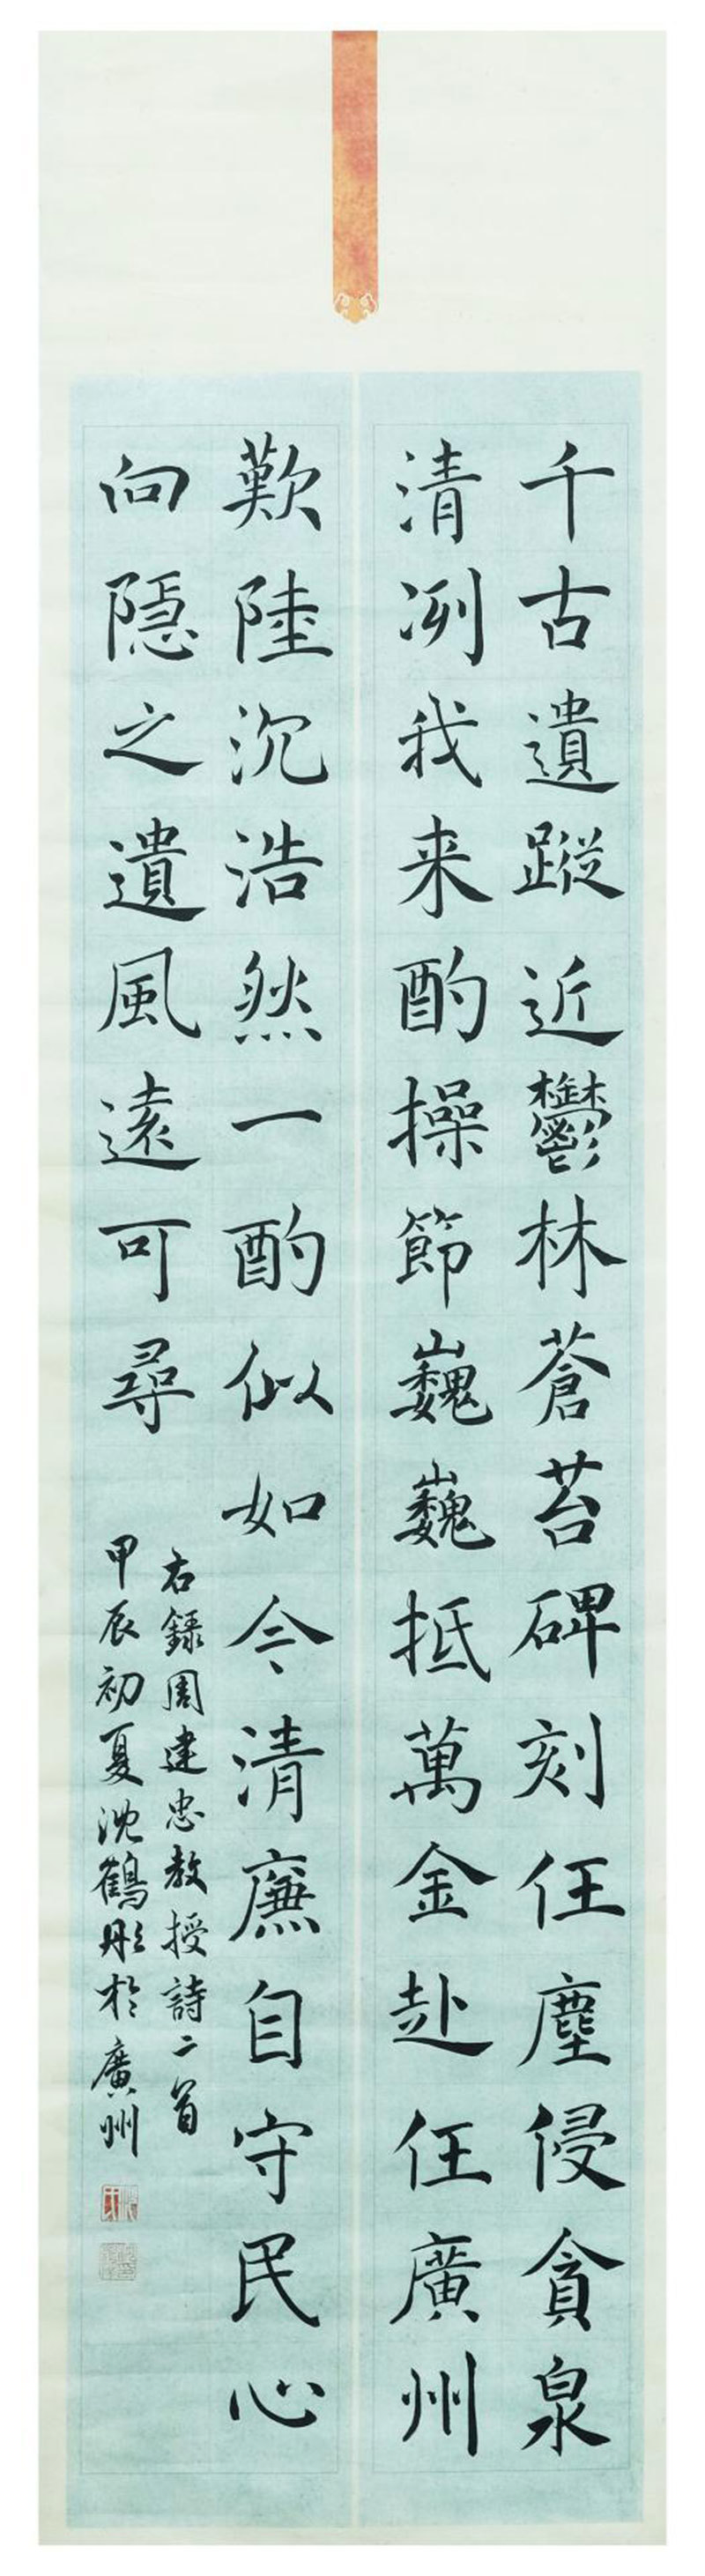 千古遺蹤近鬱林蒼苔碑刻任塵侵貪泉
清冽我来酌操節巍巍抵萬金赴任廣州
歎陸沉浩然一酌似如今清廉自守民心
向隱之遺風遠可尋
右録周建忠教授詩二首
甲辰初夏沈鶴彤於廣州